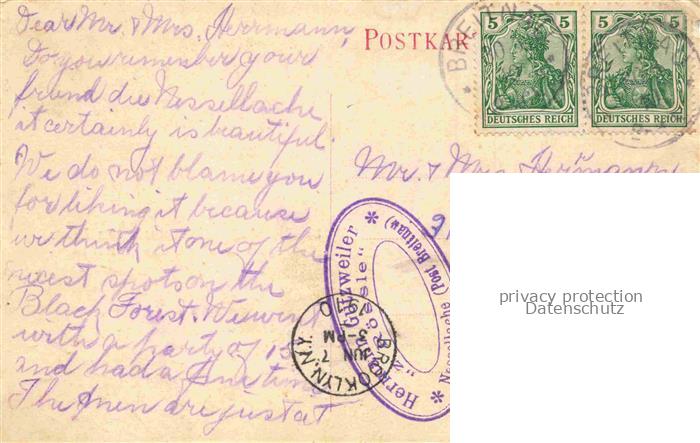 Dear Mr. & Mrs. Herrmann,
Do you remember your
friend die Nessellache
it certainly is beautiful.
We do not blame you
for liking it because
we think it one of the
nicest spots on the
Black Forest. We went
with a party of 10
and had a fine time
The men are just at
POSTKAR
5 5
DEUTSCHES REICH
5 5
DEUTSCHES REICH
BREITNAU
Mr. & Mrs. Herrmann
Hermann Gutzweiler
"z. Rössle"
Nessellache (Post Breitnau)
BROOKLYN, N.Y.
JUN 7
3-PM
1910
privacy protection
Datenschutz